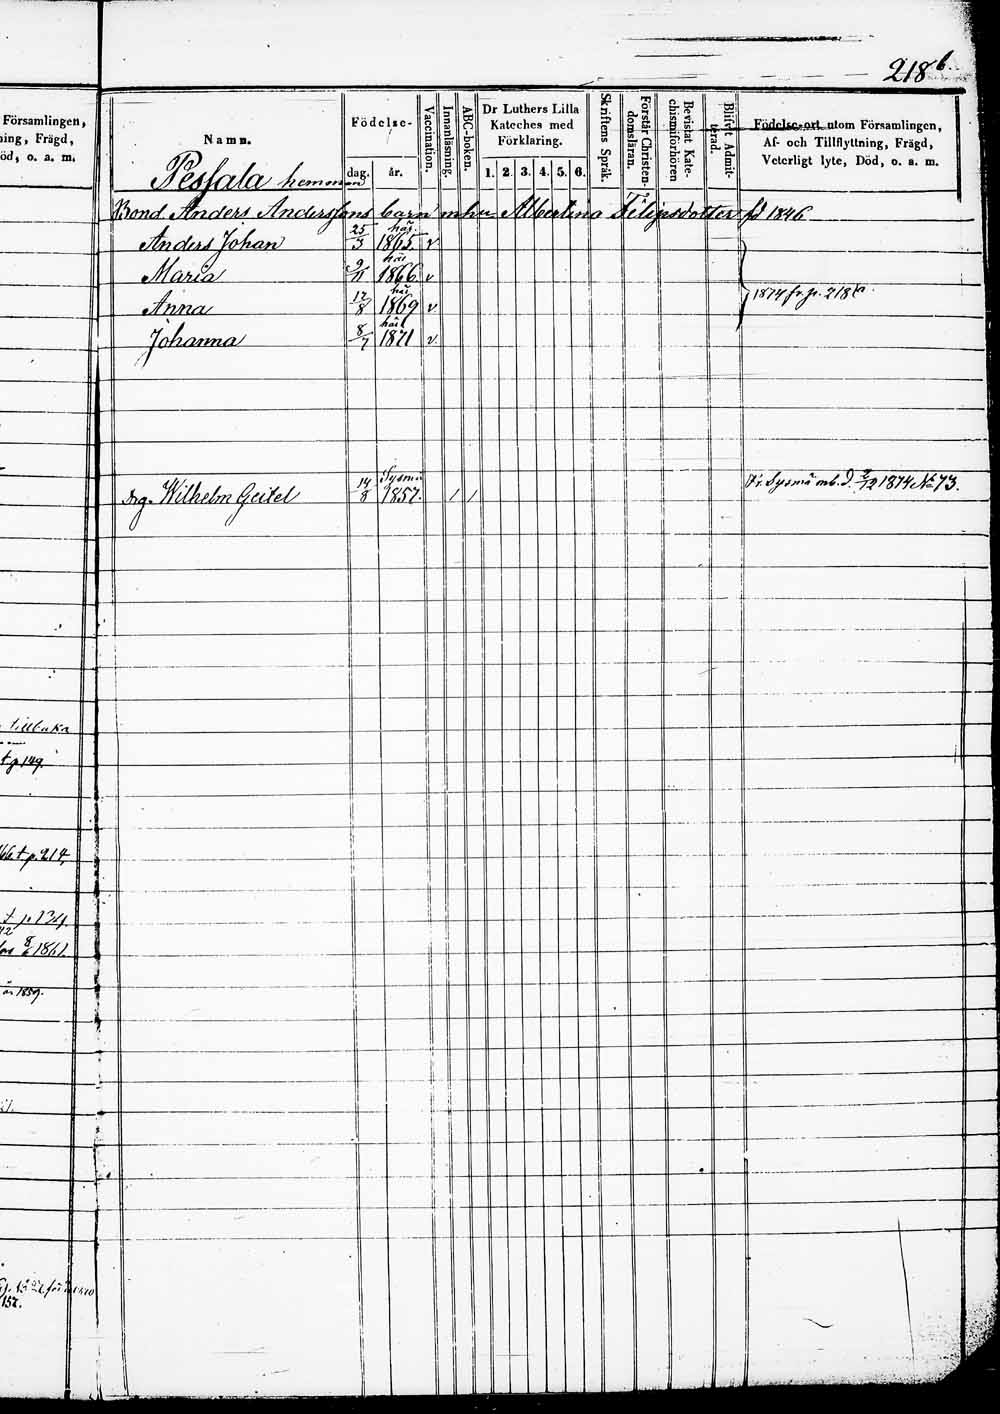 218 b.
Församlingen,
ning, Frägd,
öd, o. a. m.
Namn.
Födelse-
dag. år.
Vaccination.
Innanläsning.
ABC-boken.
Dr Luthers Lilla
Kateches med
Förklaring.
1. 2. 3. 4. 5. 6.
Skriftens Språk.
Förstår Christen-
domsläran.
Bevistat Kate-
chismiförhören
Blifvit Admit-
terad.
Födelse-ort utom Församlingen,
Af- och Tillflyttning, Frägd,
Veterligt lyte, Död, o. a. m.
Pessala hemman
Bond. Anders Anderssons barn m hu Albertina Filipsdotter fd 1846
Anders Johan 25/3 här 1865. v
Maria 9/11 här 1866. v
Anna 12/8 här 1869 v
1874 fr. p. 218 a.
Johanna 8/7 här 1871 v.
drg. Wilhelm Geitel 14/8 Sysmä 1857. / / Fr. Sysmä mb. d. 2/12 1874 № 73.
tillbaka
t p 149.
66 t p. 214,
t p. 134.
8/6 1861.
år 1859.
157.